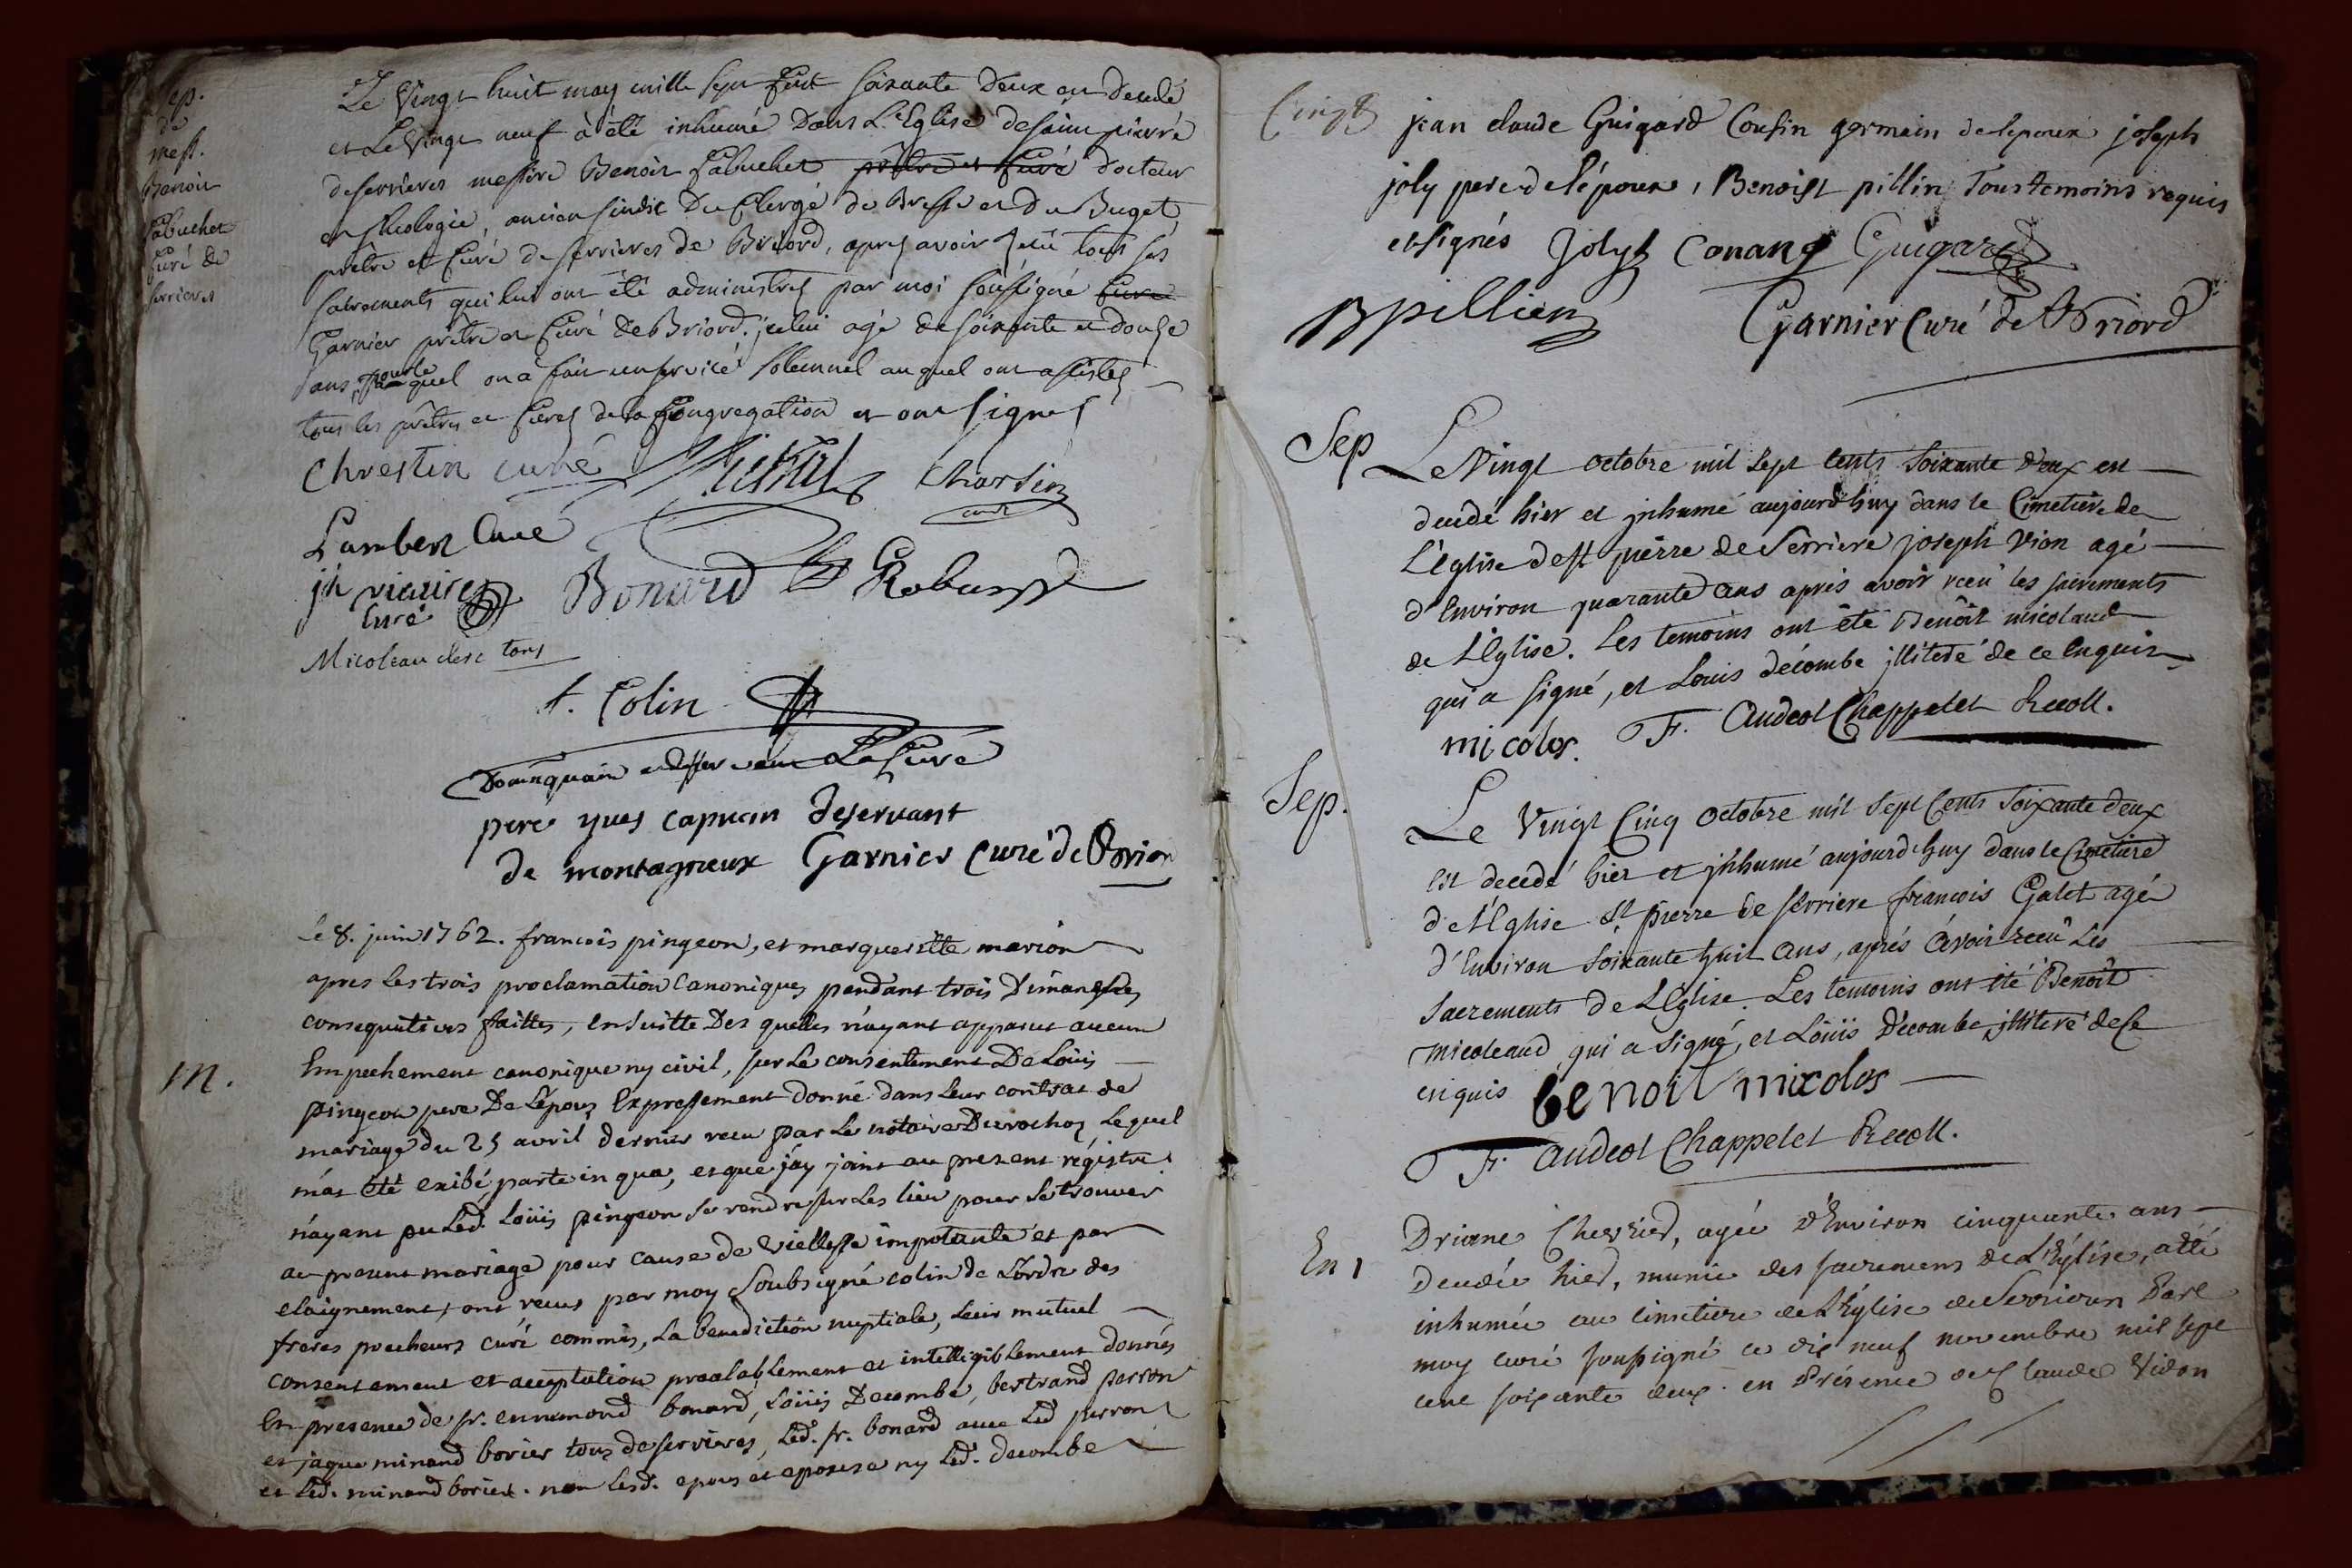 Sep.
de
mess.
Benoit
Cabuchet
curé de
serrieres
Le Vingt huit may mille sept cent soixante deux est decedé
et Le Vingt neuf à été inhumé Dans L'Eglise de saint pierre
de serrieres messire Benoit Cabuchet prêtre et curé docteur
en theologie, ancien sindic Du Clergé de Bresse et du Buget,
prêtre et Curé de serrieres de Briord, après avoir reçu tous ses
sacrements qui lui ont été administrés par moi soussigné Curé
Garnier prêtre et Curé De Briord. icelui agé de soixante et douze
ans, pour lequel on a fait un service solemnel auquel ont assistés
tous les prêtres et Curés de la Congregation et ont signés
Chrestin curé Michal Charlin
curé
Lambert Curé
jh vicaire Bonard Robin
Curé
Micoleau clerc tons
f. Colin
Dominquain desservant La Cure
pere yves capucin deservant
de montagneux Garnier Curé de Brior
Le 8. juin 1762. françois pingeon, et marguerite marion
apres les trois proclamation Canoniques pendant trois Dimanches
consequutives faittes, Ensuitte Des quelles n'ayant apparut aucun
m.
Empechement canonique ny civil, sur Le consentement De Loüis
pingeon pere De L'épous Expressement donné dans leur contrat de
mariage du 25 avril dernier recu par Le notaire Durochoz Lequel
m'at été exibé, parte in qua, et que jáy joint au present régistre
n'ayant pu Led. Loüis pingeon se rendre sur Les lieu pour se trouver
au present mariage pour cause de vieillesse impotente et par
elaignement, ont recus par moy Soubsigné colin de L'ordre des
freres precheurs curé commis, La benediction nuptiale, Leur mutuel
consentement et acceptation prealablement et intelligiblement donnés
En presence de sr. ennemond bonard, Loüis Decombe, bertrand perron
et jaque minand borier tous de serrieres, Led. sr. bonard avec Led perron
et Led. minand borier. non lesd. epous et epouse ny Led. decombe
jean claude Guigard Cousin germain de lepoux joseph
joly pere de l'épouse, Benoist pillin Tous temoins requis
et signés Joly Conand Guigard
B pillien Garnier Curé de Briord
Sep Le Vingt octobre mil sept cents soixante deux est
decedé hier et jnhumé aujourd'huy dans le Cimetiere de
L'église de st pierre de Serriere joseph Vion agé
d'Environ quarante ans aprés avoir reçu les sacrements
de L'Eglise. Les temoins ont été Benôit micolaud
qui a signé, et Louis décombe jlliteré de ce Enquis
micolos. F. Audeol Chappelet Recoll.
Sep.
Le Vingt Cinq octobre mil sept Cents soixante deux
est decedé hier et jnhumé aujourd'huy dans le Cimetiere
de l'Eglise st pierre de serriere françois Galet agé
d'Environ soixante huit ans, aprés avoir reçu Les
Sacrements de L'Eglise. Les temoins ont été Benôit
micoleaud qui a signé, et Loüis Décombe jlliteré de Ce
enquis benoit micolos
F. Audeol Chappelet Recoll.
En 1 Driane Chevrier, agée d'Environ cinquante ans
decedée hier, munie des sacremens de L'Eglise, a été
inhumée au cimetiere de L'Eglise de Serrieres Par
moy curé soussigné ce dix neuf novembre mil sept
cent soixante deux. en Présence de Claude Vion